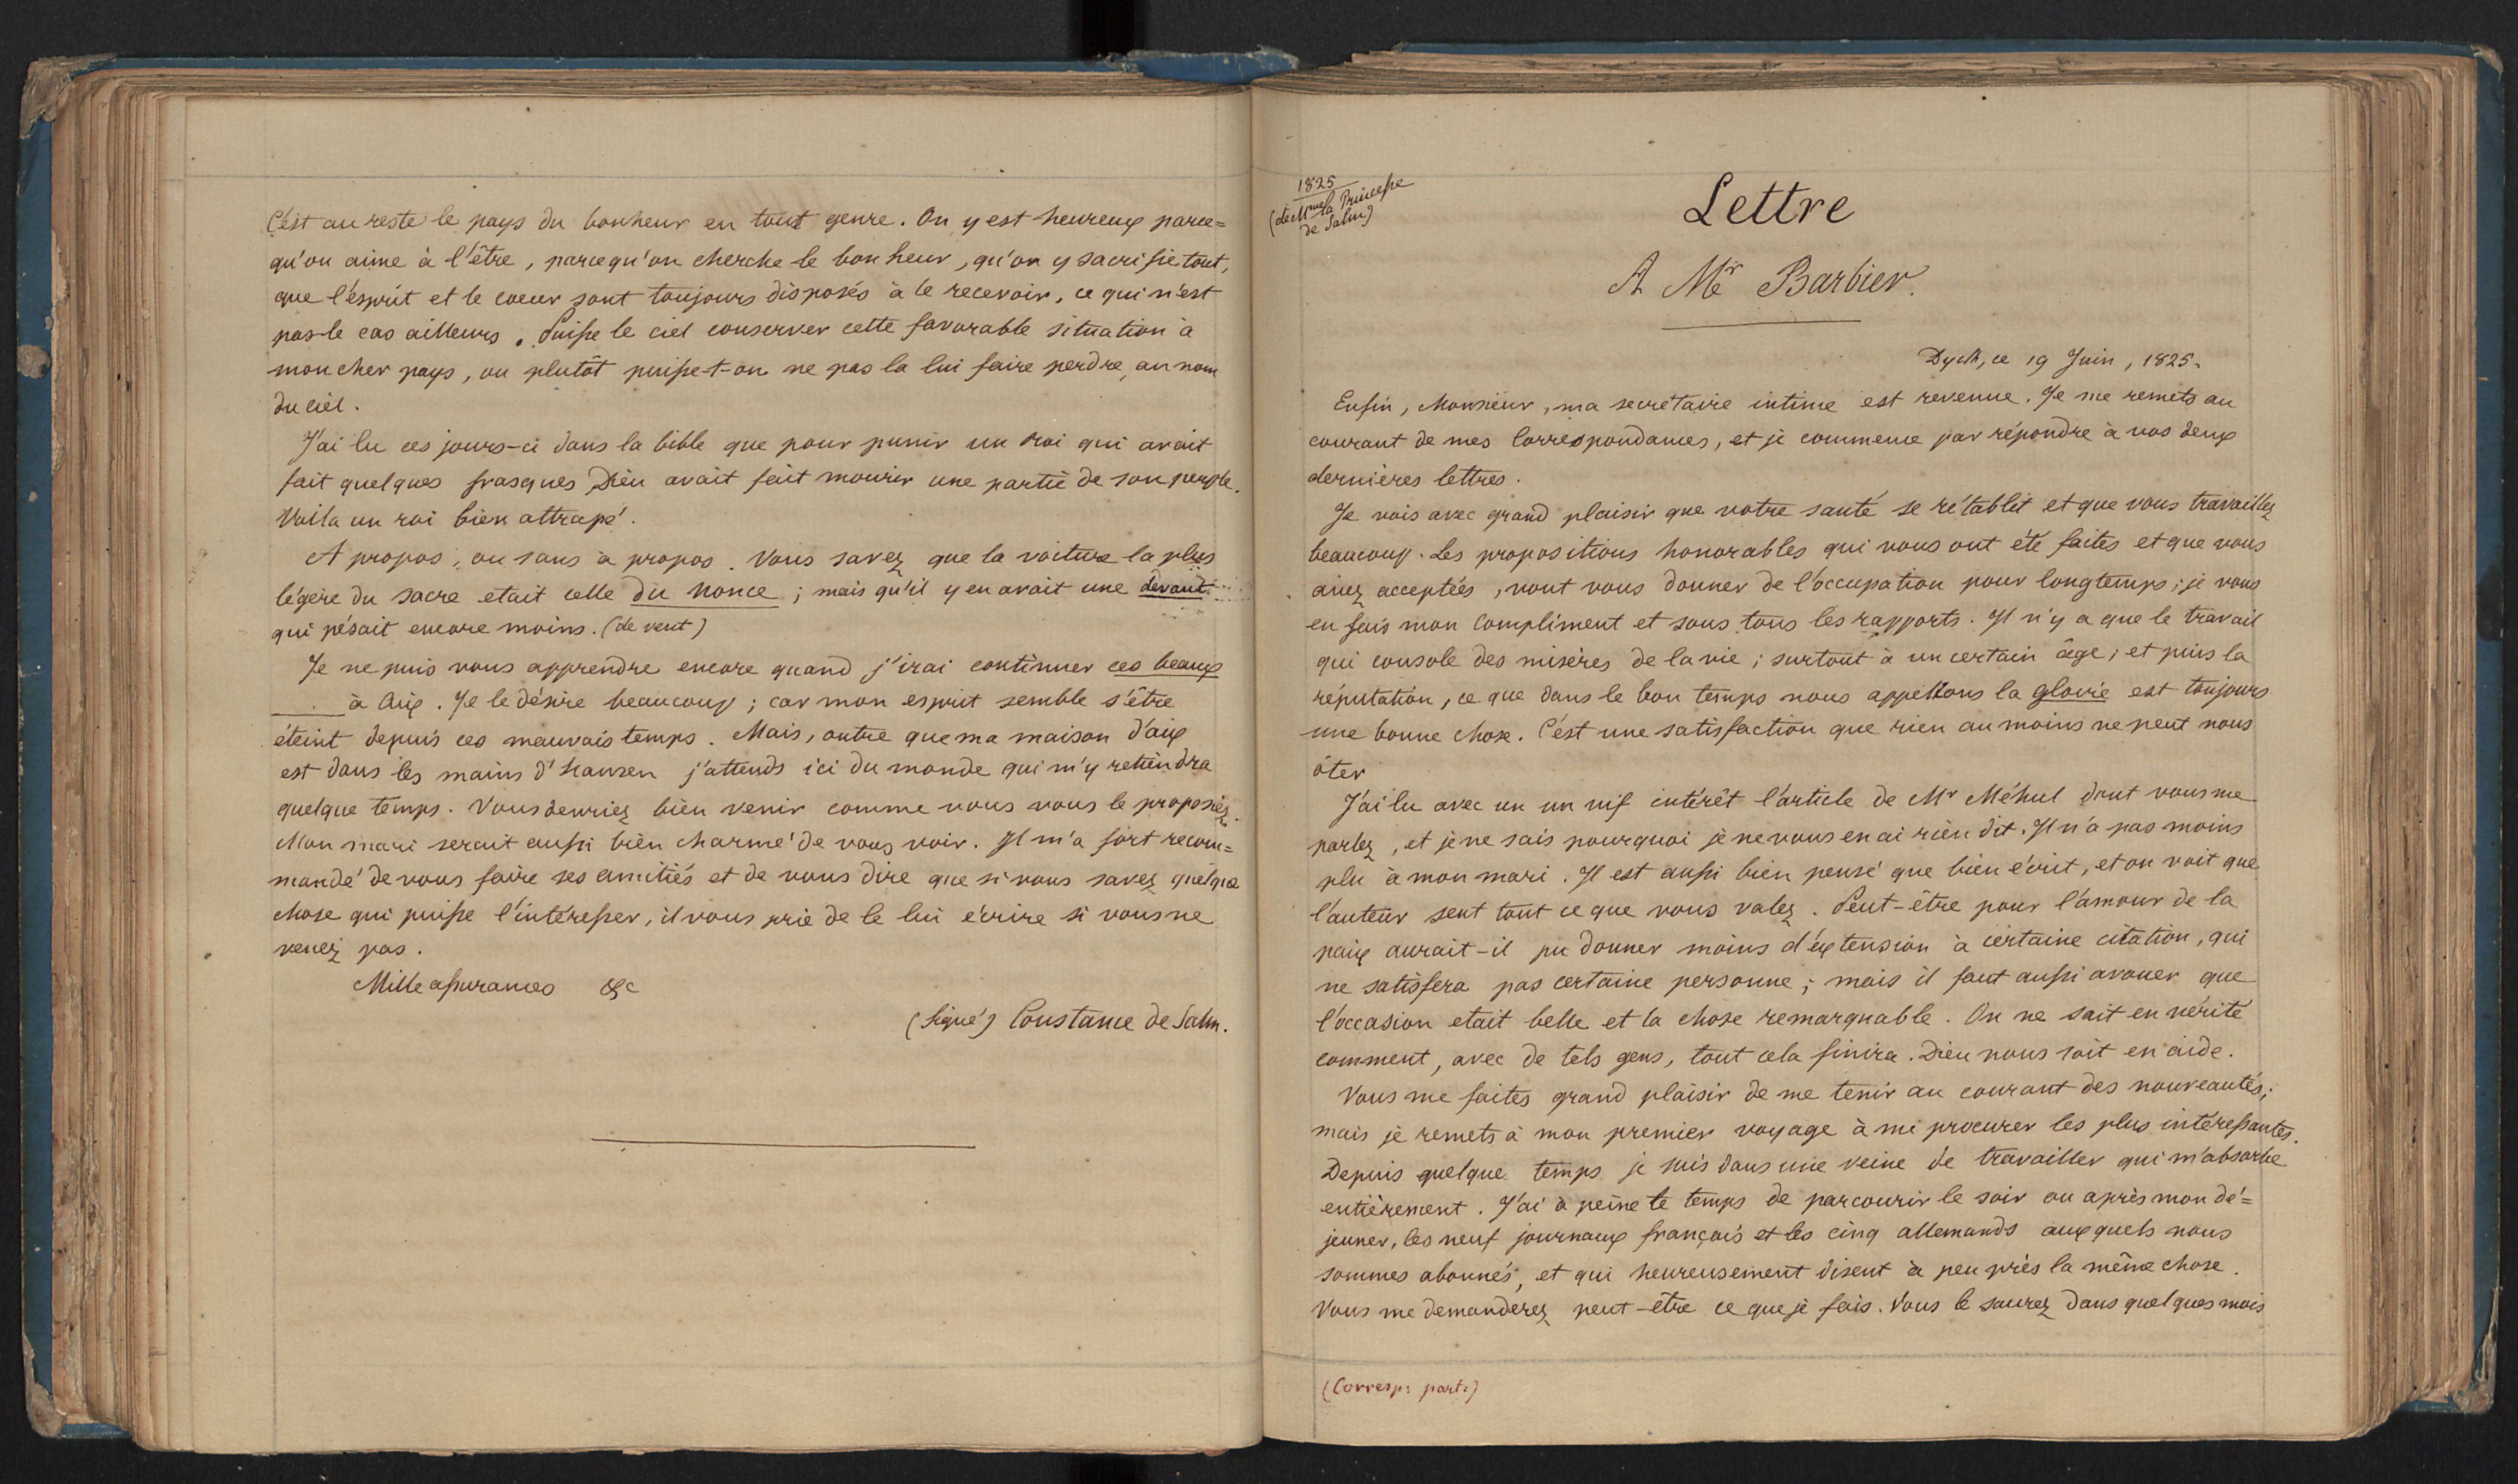 C'est au reste le pays du bonheur en tout genre. On y est heureux parce=
qu'on aime à l'être, parcequ'on cherche le bonheur, qu'on y sacrifie tout,
que l'esprit et le coeur sont toujours disposés à le recevoir, ce qui n'est
pas le cas ailleurs. Puisse le ciel conserver cette favorable situation à
mon cher pays, ou plutôt puisse-t-on ne pas la lui faire perdre, au nom
du ciel.
J'ai lu ces jours-ci dans la bible que pour punir un roi qui avait
fait quelques frasques, Dieu avait fait mourir une partie de son peuple.
Voila un roi bien attrapé.
A propos, ou sans à propos. Vous savez que la voiture la plus
légère du sacre etait celle du nonce; mais qu'il y en avait une devant
qui pésait encore moins. (de vent)
Je ne puis vous apprendre encore quand j'irai continuer ces beaux
____ à Aix. Je le désire beaucoup; car mon esprit semble s'être
éteint depuis ces mauvais temps. Mais, outre que ma maison d'aix
est dans les mains d'hansen j'attends ici du monde qui m'y retiendra
quelque temps. Vous devriez bien venir comme vous vous le proposiez.
Mon mari serait aussi bien charmé de vous voir. Il m'a fort recom=
mandé de vous faire ses amitiés et de vous dire que si vous savez quelque
chose qui puisse l'intéresser, il vous prie de le lui écrire si vous ne
venez pas.
Mille assurances &c
(Signé) Constance de Salm.
1825
(de Mme la Princesse
de Salm)
Lettre
A Mr Barbier.
Dyck, ce 19 Juin, 1825.
Enfin, Monsieur, ma secrétaire intime est revenue. Je me remets au
courant de mes Correspondances, et je commence par répondre à vos deux
dernières lettres.
Je vois avec grand plaisir que votre santé se rétablit et que vous travaillez
beaucoup. Les propositions honorables qui vous ont été faites et que vous
avez acceptées, vont vous donner de l'occupation pour longtemps; je vous
en fais mon compliment et sous tous les rapports. Il n'y a que le travail
qui console des misères de la vie; surtout à un certain âge; et puis la
réputation, ce que dans le bon temps nous appellions la gloire est toujours
une bonne chose. C'est une satisfaction que rien au moins ne peut nous
ôter
J'ai lu avec un un vif intérêt l'article de Mr Méhul dont vous me
parlez, et je ne sais pourquoi je ne vous en ai rien dit. Il n'a pas moins
plu à mon mari. Il est aussi bien pensé que bien écrit, et on voit que
l'auteur sent tout ce que vous valez. Peut-être pour l'amour de la
paix aurait-il pu donner moins d'extension à certaine citation, qui
ne satisfera pas certaine personne; mais il faut aussi avouer que
l'occasion etait belle et la chose remarquable. On ne sait en vérité
comment, avec de tels gens, tout cela finira. Dieu nous soit en aide.
Vous me faites grand plaisir de me tenir au courant des nouveautés;
mais je remets à mon premier voyage à me procurer les plus intéressantes.
Depuis quelque temps je suis dans une veine de travailler qui m'absorbe
entièrement. J'ai à peine le temps de parcourir le soir ou après mon dé=
jeuner, les neuf journaux français et les cinq allemands auxquels nous
sommes abonnés, et qui heureusement disent à peu près la même chose.
Vous me demanderez peut-être ce que je fais. Vous le saurez dans quelques mois
(Corresp: part:)